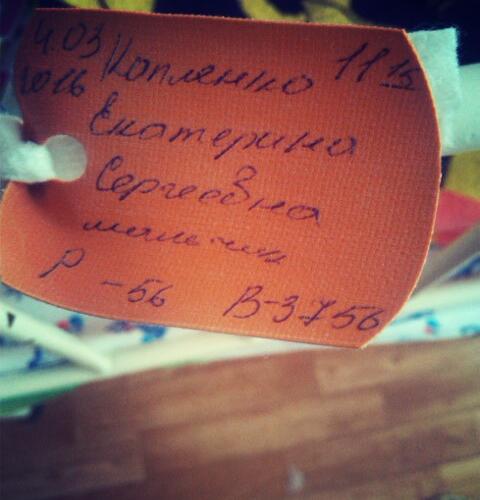 4.03 Копленко 11 15
2016
Екатерина
Сергеевна
мальчик
Р -56 В-3756